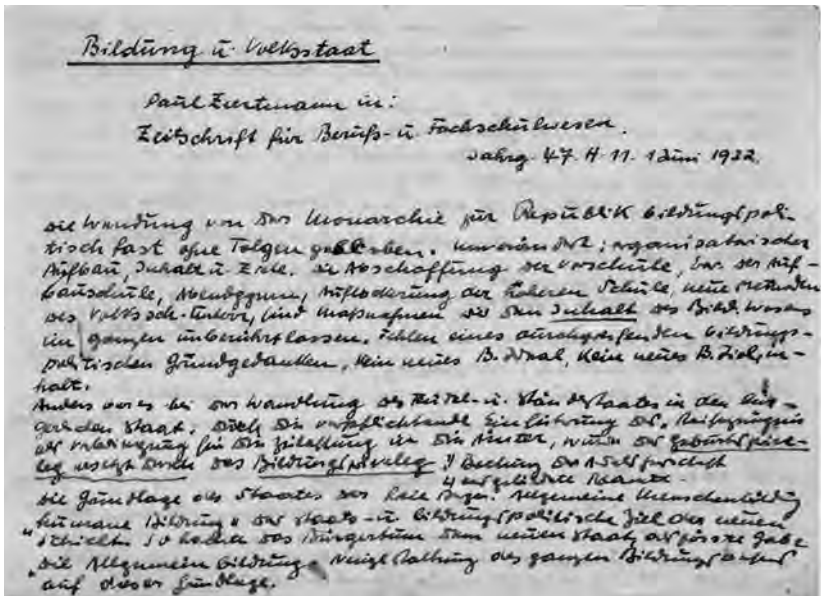 Bildung u. Volksstaat
Paul Ziertmann in:
Zeitschrift für Berufs- u. Fachschulwesen.
Jahrg. 47. H. 11. 1 Juni 1932.
Die Wandung von der Monarchie zur Republik bildungspoli-
tisch fast ohne Folgen geblieben. Unverändert: organisatorischer
Aufbau, Inhalt u. Ziele. Die Abschaffung der Vorschule, der Auf-
bauschule, Abendgymn, Auflockerung der höheren Schule, neue Methoden
des Volkssch.- sind Maßnahmen die den Inhalt des Bild.wesens
im ganzen unberührt lassen. Fehlen eines durchgreifenden bildungs-
politischen Grundgedanken, kein neues B.ideal, kein neues B.zielin-
halt.
Anders war es bei der Wandlung des Adels- u. Ständestaates in den bür-
gerlichen Staat. Durch die verpflichtende Einführung des Reifezeugnis
als Vorbedingung für die Zulassung in die Ämter, wurde das Geburtsprivi-
leg ersetzt durch das Bildungsprivileg. 1) Brechung der Adels
2) gebildete Beamte.
Die Grundlage des Staates der freie Bürger. Allgemeine Menschenbildung
"humane Bildung" das staats- u. bildungspolitische Ziel der neuen
Schicht. So brachte das Bürgertum dem neuen Staat als Gabe
"die Allgemeinbildung. Neugestaltung des ganzen Bildungs
auf dieser Grundlage.